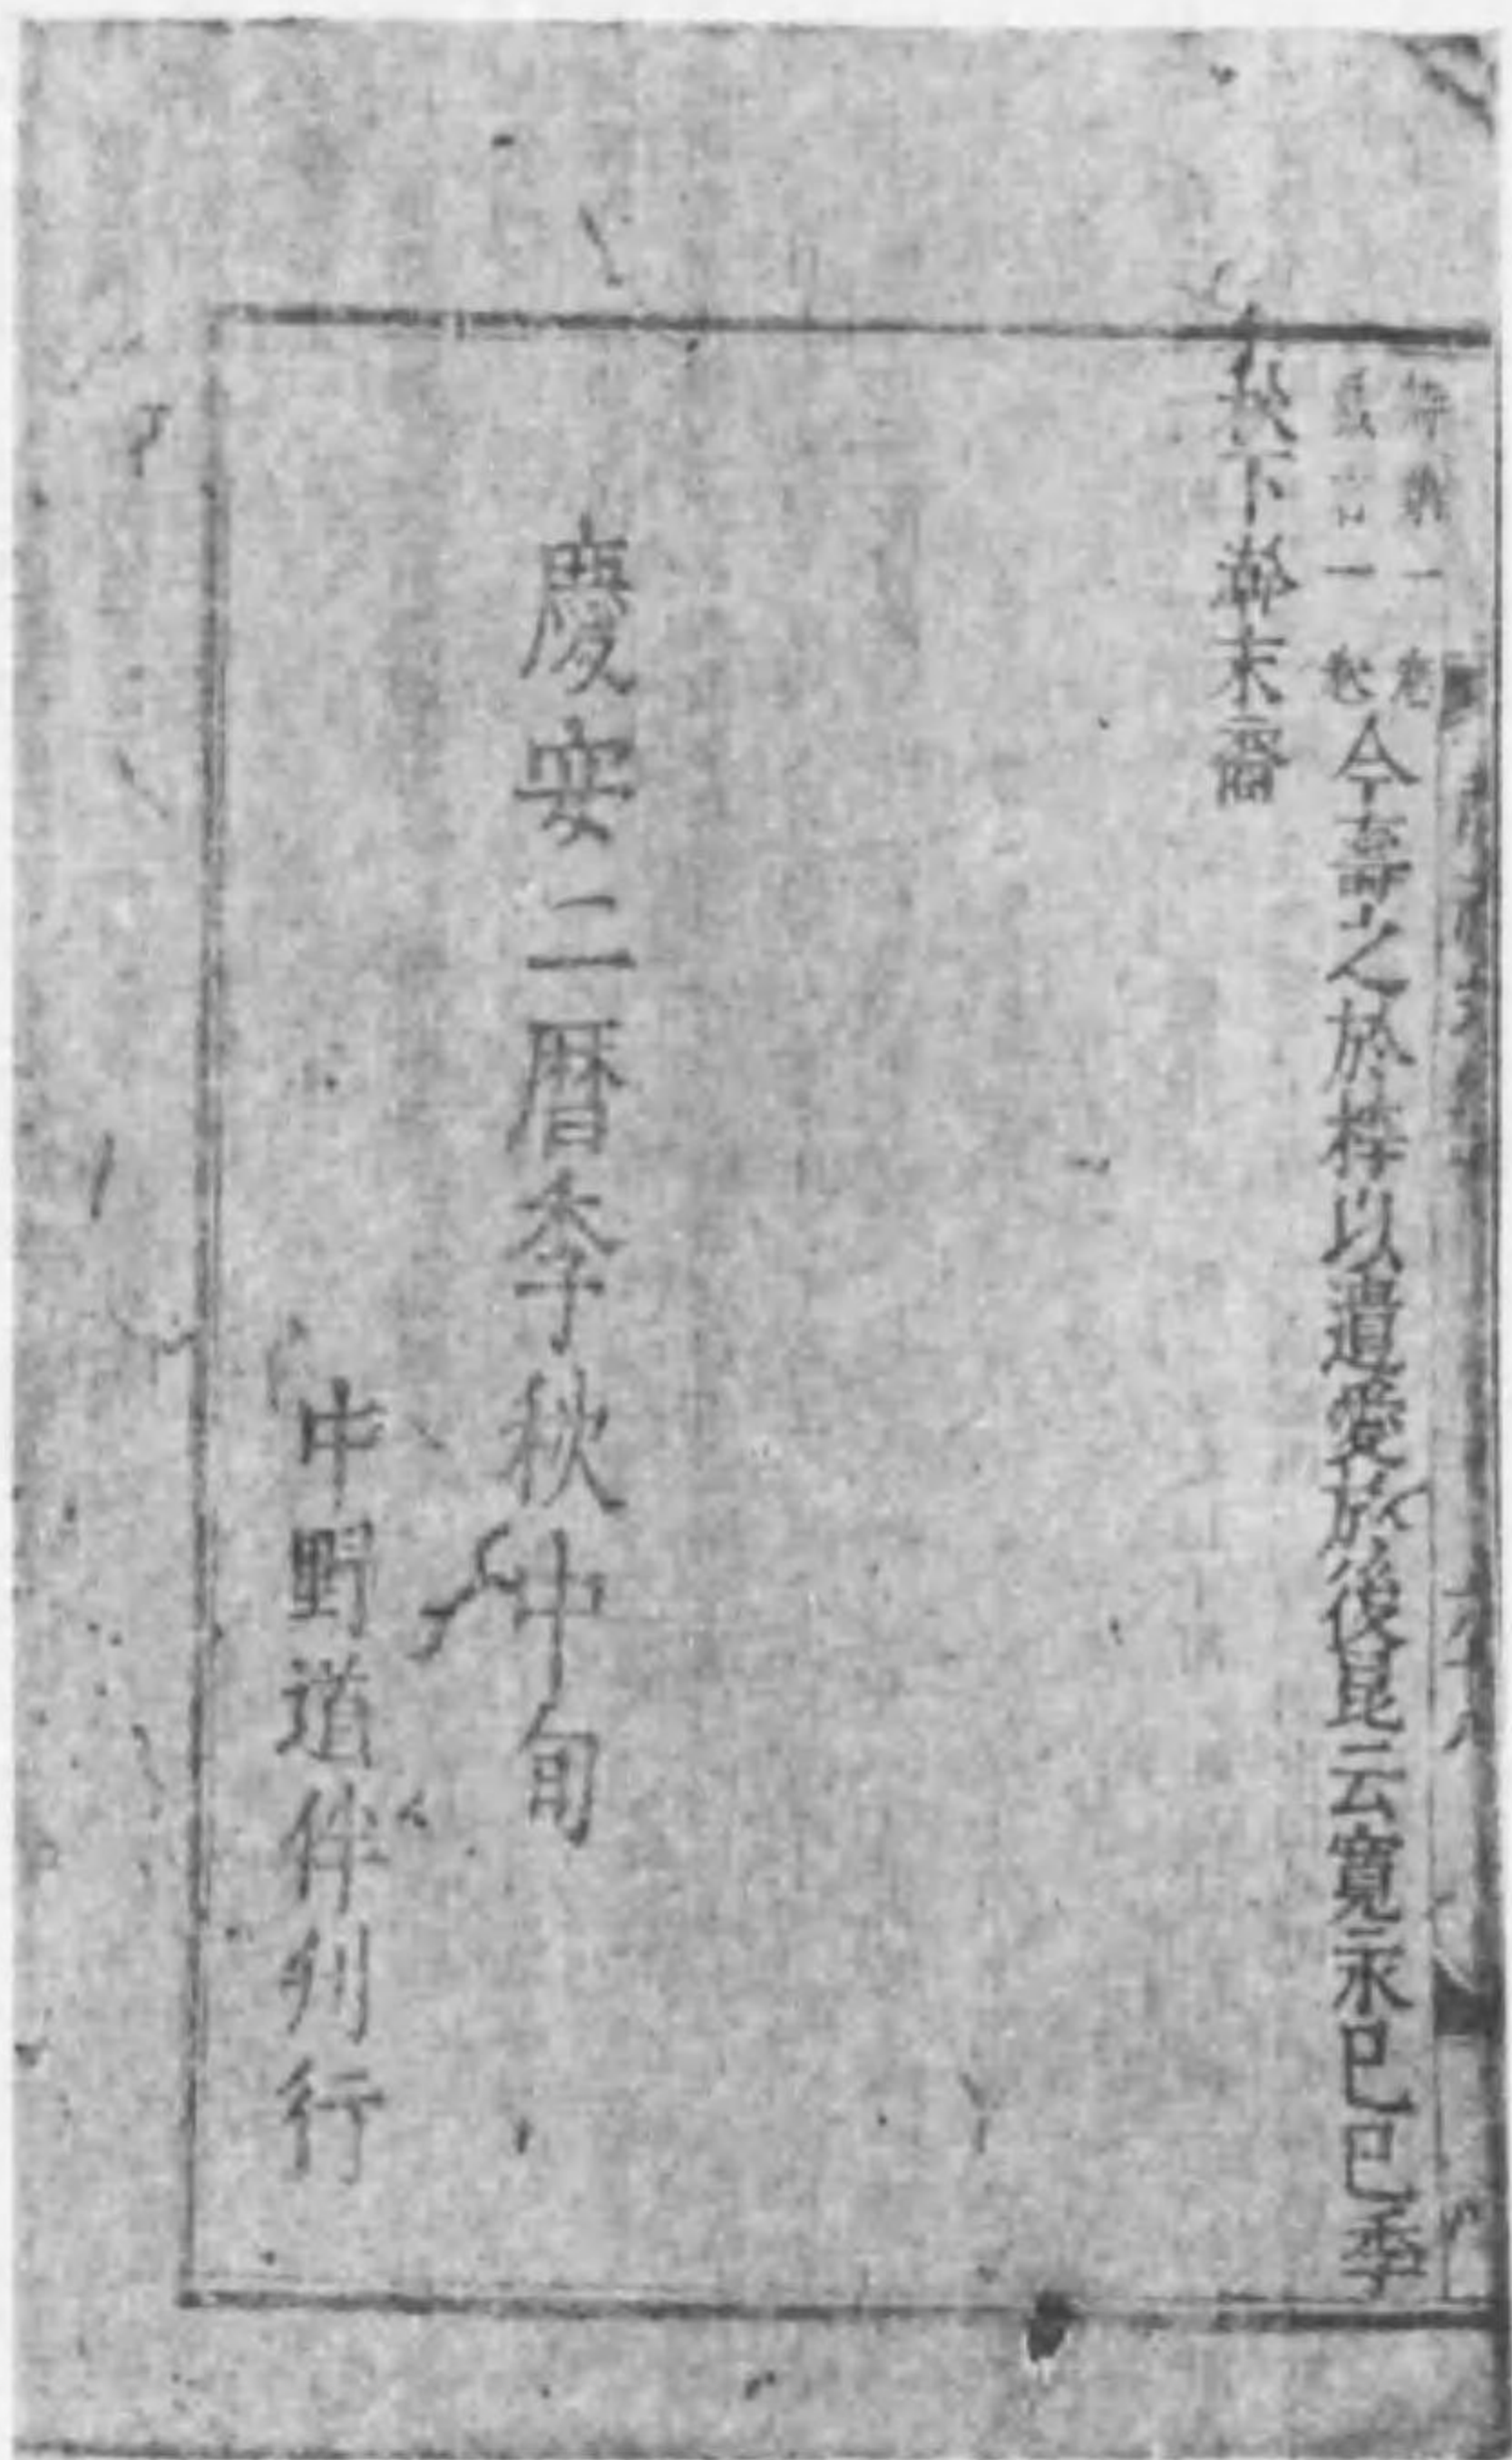 一卷
一卷
今壽之於梓以遺愛於後昆云寬永己巳季
秋下澣末裔
慶安二暦季秋中旬
中野道伴刋行